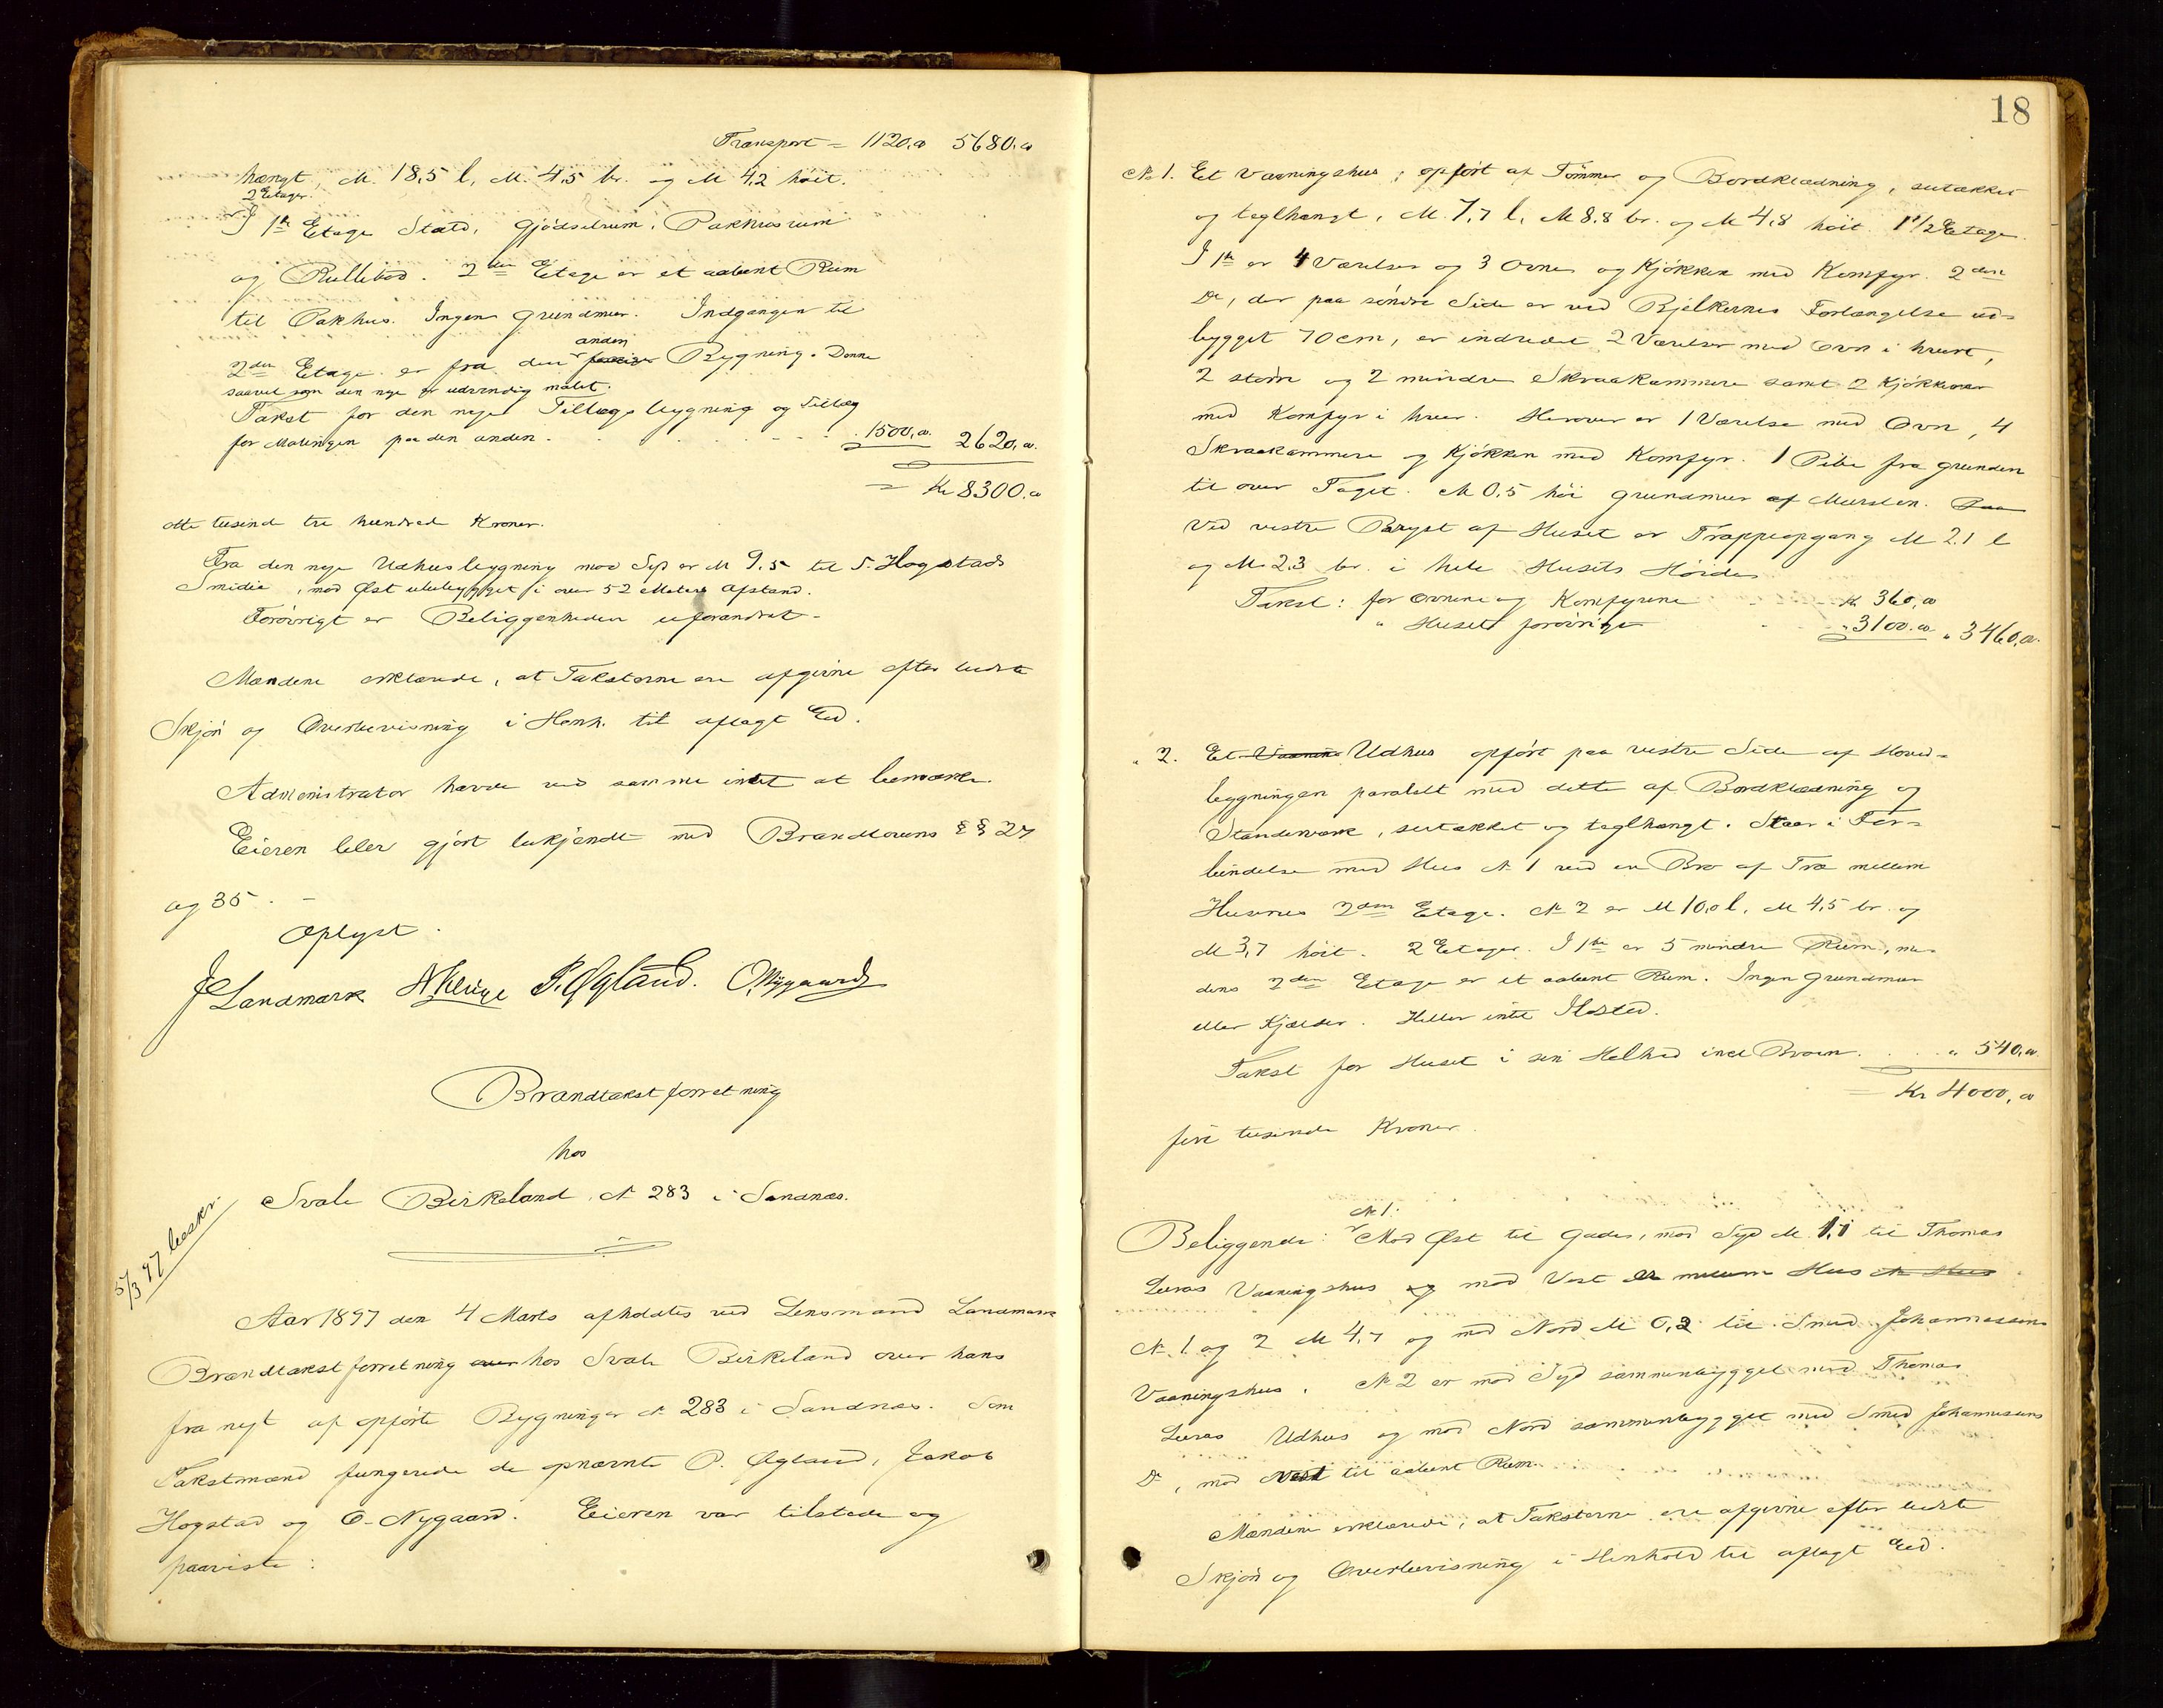 Transport = 1120,00 5680,00
hængt, M. 18,5 l, M. 4,5 br. og M 4,2 höit.
2 Etager.
I 1ste Etage Stald, Gjödselrum, Pakhusrum
og Rullebod. 2den Etage er et aabent Rum
til Pakhus. Ingen Grundmur. Indgangen til
anden
2den Etage er fra den Bygning. Denne
saavel som den nye er udvendig malet.
Takst for den nye Tillægsbygning og Tillæg
for Malingen paa den anden . . . . 1500,00. 2620,00.
= Kr 8300,00
otte tusind tre hundrede Kroner.
Fra den nye Udhusbygning mod Syd er M 9,5 til S. Hogstads
Smidie, mod Øst ubebygget i over 52 Meters Afstand.
Forövrigt er Beliggenheden uforandret.
Mændene erklærede, at Taksterne ere afgivne efter bedste
Skjön og Overbevisning i Henh. til aflagt Ed.
Administrator havde ved samme intet at bemærke.
Eieren blev gjort bekjendt med Brandlovens §§ 27
og 35.
Oplyst.
J Landmark P. Øgland. O Nygaard
Brandtakstforretning
hos
Svale Birkeland, No 283 i Sandnæs.
5/3 97 beskr.
Aar 1897 den 4 Marts afholdtes ved Lensmand Landmark
Brandtakstforretning over hos Svale Birkeland over hans
fra nyt af opförte Bygninger No 283 i Sandnæs. Som
Takstmænd fungerede de opnævnte P. Øgland, Jakob
Hogstad og O. Nygaard. Eieren var tilstede og
paaviste:
18
No 1. Et Vaaningshus, opfört af Tömmer og Bordklædning, sutækket
og teglhængt, M. 7,7 l, M 8,8 br. og M 4,8 höit. 1 1/2 Etage.
I 1ste er 4 Værelser og 3 Ovne og Kjökken med Komfyr. 2den
Do, der paa söndre Side er ved Bjelkernes Forlængelse ud-
bygget 70 cm, er indredet 2 Værelser med Ovn i hvert,
2 större og 2 mindre Skraakammere samt 2 Kjökkener
med Komfyr i hver. Herover er 1 Værelse med Ovn, 4
Skraakammere og Kjökken med Komfyr. 1 Pibe fra Grunden
til over Taget. M 0,5 höi Grundmur af Mursten. Paa
Ved vestre Bryst af Huset er Trappeopgang M 2.1 l
og M 2.3 br. i hele Husets Höide.
Takst: for Ovnene og Komfyrene Kr 360,00
" Huset forövrigt " 3100.00 " 3460,00.
" 2. Et Vaanin Udhus opfört paa vestre Side af Hoved-
bygningen paralelt med dette af Bordklædning og
Standerværk, sutækket og teglhængt. Staar i For-
bindelse med Hus No 1 ved en Bro af Træ mellem
Husenes 2den Etage. No 2 er M 10,0 l, M 4,5 br. og
M 3,7 höit. 2 Etager. I 1ste er 5 mindre Rum, me-
dens 2den Etage er et aabent Rum. Ingen Grundmur
eller Kjælder. Heller intet Ildsted.
Takst for Huset i sin Helhed incl Broen . . . " 540,00.
= Kr 4000,00
fire tusinde Kroner.
No 1:
Beliggende: Mod Øst til Gaden, mod Syd M. 1,1 til Thomas
Luras Vaaningshus og mod Vest er mellem Hus No Hus
No 1 og 2 M 4,7 og mod Nord M 0,2 til Smed Johannessens
Vaaningshus. No 2 er mod Syd sammenbygget med Thomas
Luras Udhus og mod Nord sammenbygget med Smed Johannesens
Do, mod Vest til aabent Rum.
Mændene erklærede, at Taksterne ere afgivne efter bedste
Skjön og Overbevisning i Henhold til aflagt Ed.